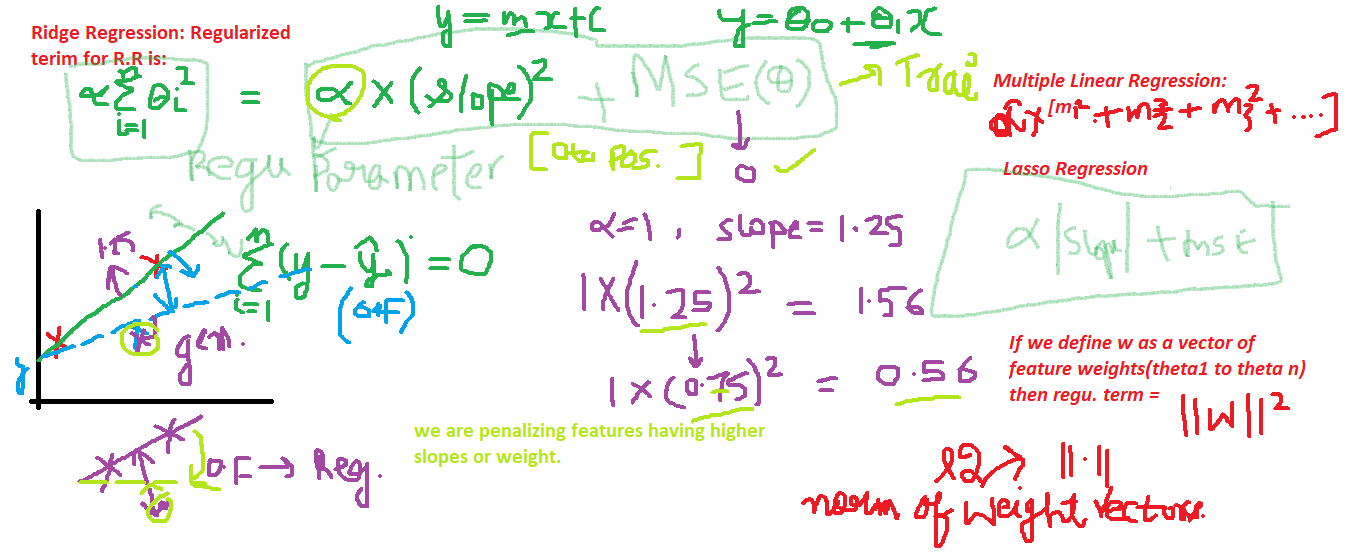 y = mx+c
y = θ₀ + θ₁x
Ridge Regression: Regularized
terim for R.R is:
α Σ_{i=1}^{n} θᵢ² = α × (slope)² + MSE(θ) →
Regu Parameter
0 ✓
Multiple Linear Regression:
α × [m₁² + m₂² + m₃² + ....]
Lasso Regression
α |slope| + MSE
Σ_{i=1}^{n} (y - ŷ) = 0
y
gen.
α=1 , slope = 1.25
1×(1.25)² = 1.56
1×(0.75)² = 0.56
If we define w as a vector of
feature weights(theta1 to theta n)
then regu. term = ||W||²
we are penalizing features having higher
slopes or weight.
O.F → Reg.
l2 → ||.||
norm of weight vectors.